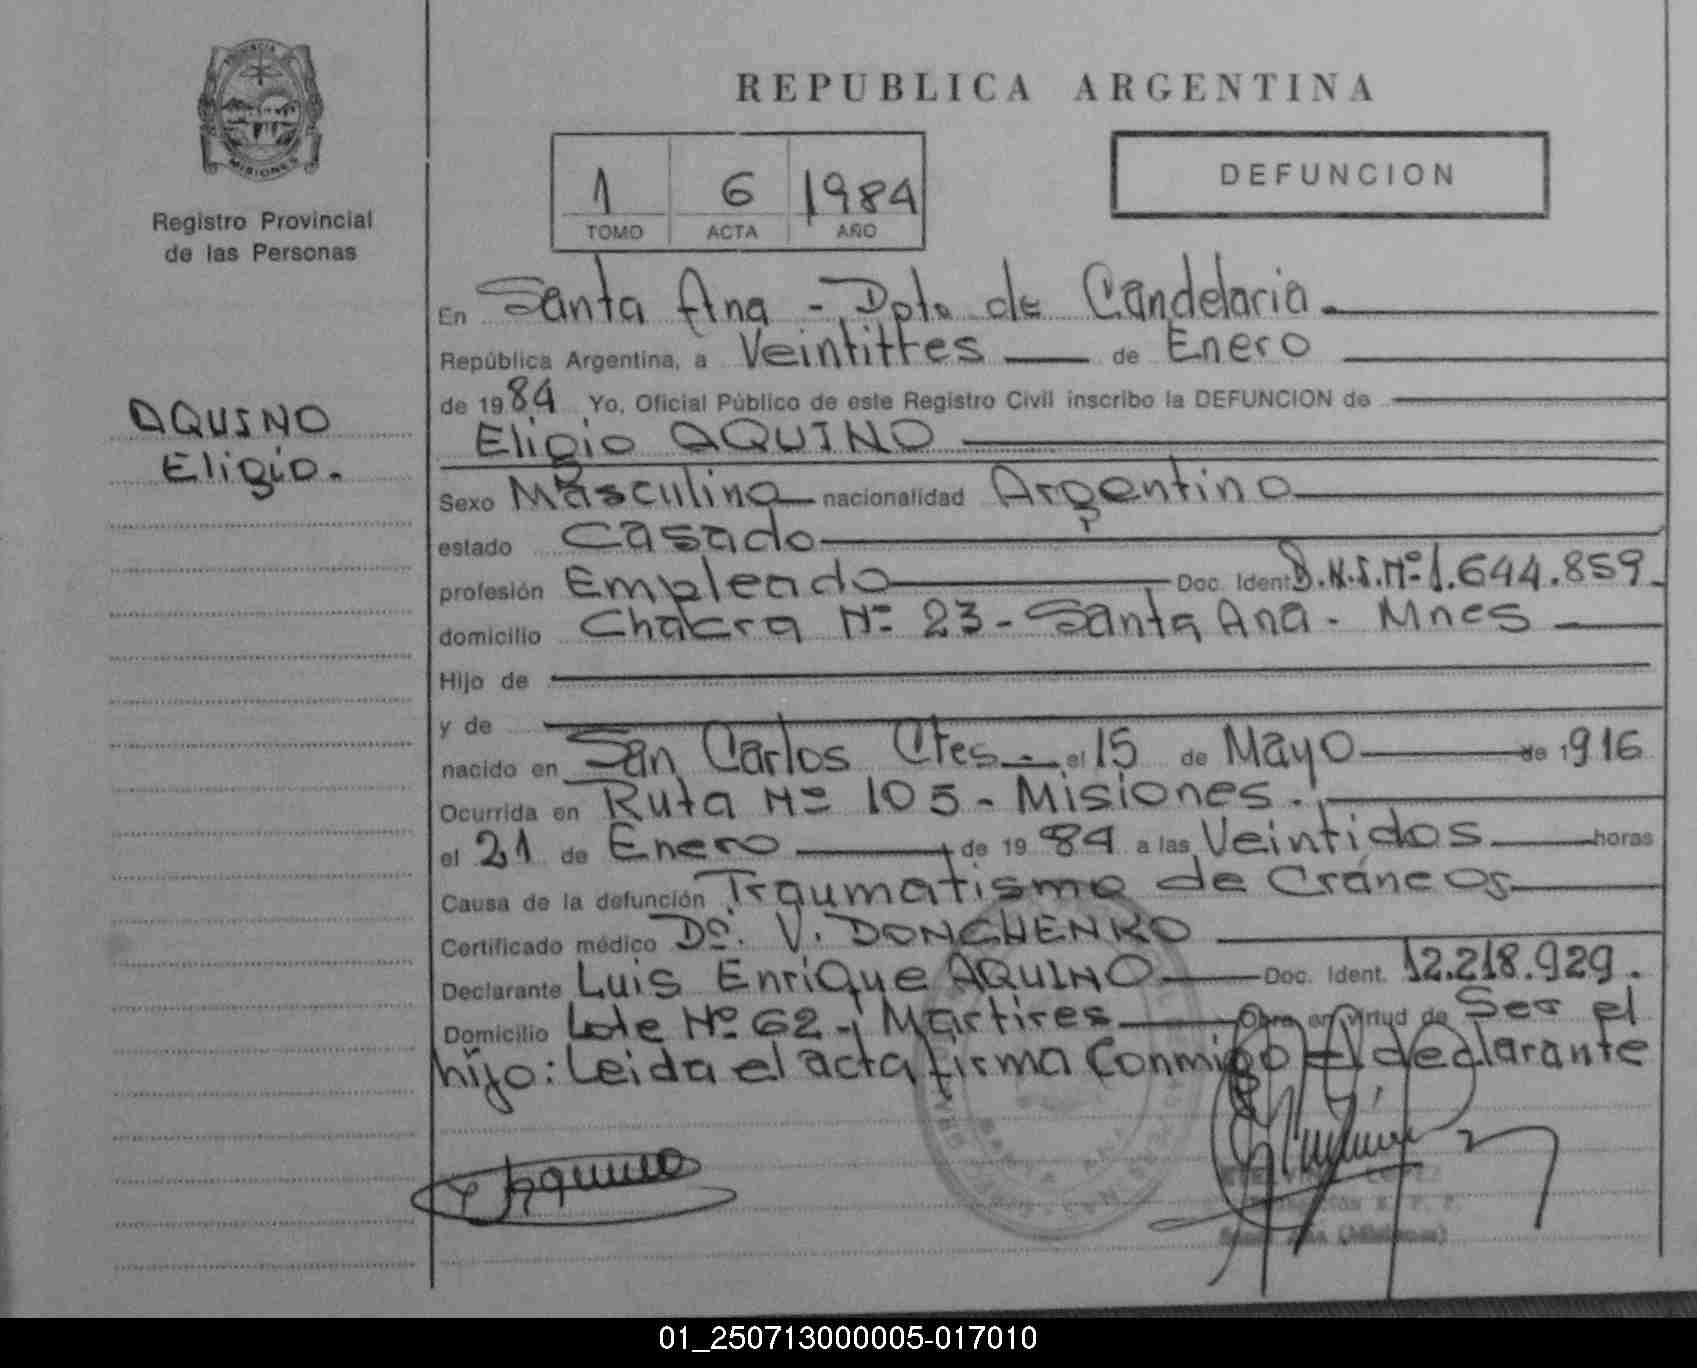 PROVINCIA
MISIONES
Registro Provincial
de las Personas
AQUINO
Eligio.
REPUBLICA ARGENTINA
1 6 1984
TOMO ACTA AÑO
DEFUNCION
En Santa Ana - Dpto de Candelaria.
República Argentina, a Veintitres de Enero
de 1984 Yo, Oficial Público de este Registro Civil inscribo la DEFUNCION de
Eligio AQUINO
Sexo Masculino nacionalidad Argentino
estado Casado
profesión Empleado Doc. Ident. D.N.I. Nº 1.644.859.
domicilio Chacra Nº 23 - Santa Ana - Mnes
Hijo de
y de
nacido en San Carlos Ctes. el 15 de Mayo de 1916
Ocurrida en Ruta Nº 105 - Misiones.
el 21 de Enero de 1984 a las Veintidos horas
Causa de la defunción Traumatismo de Cráneos
Certificado médico Dr. V. DONCHENKO
Declarante Luis Enrique AQUINO Doc. Ident. 12.218.929.
Domicilio Lote Nº 62 - Martires Obra en virtud de Ser el
hijo: Leida el acta firma Conmigo el declarante
SANTA ANA
Santa Ana (Misiones)
01_250713000005-017010